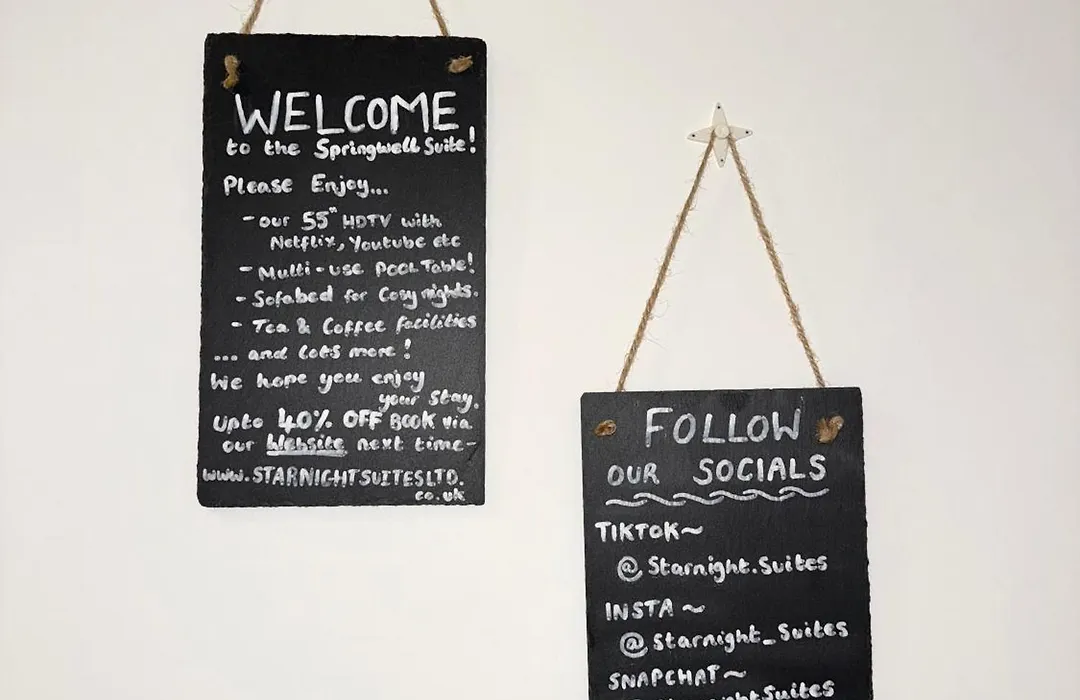 WELCOME
to the Springwell Suite!
Please Enjoy...
- our 55" HDTV with
Netflix, Youtube etc
- Multi-use POOL Table!
- Sofabed for Cosy nights.
- Tea & Coffee facilities
... and lots more!
We hope you enjoy
your stay.
Upto 40% OFF BOOK via
our Website next time-
www.STARNIGHTSUITESLTD.
co.uk
FOLLOW
OUR SOCIALS
TIKTOK~
@ Starnight.Suites
INSTA ~
@ Starnight_Suites
SNAPCHAT~